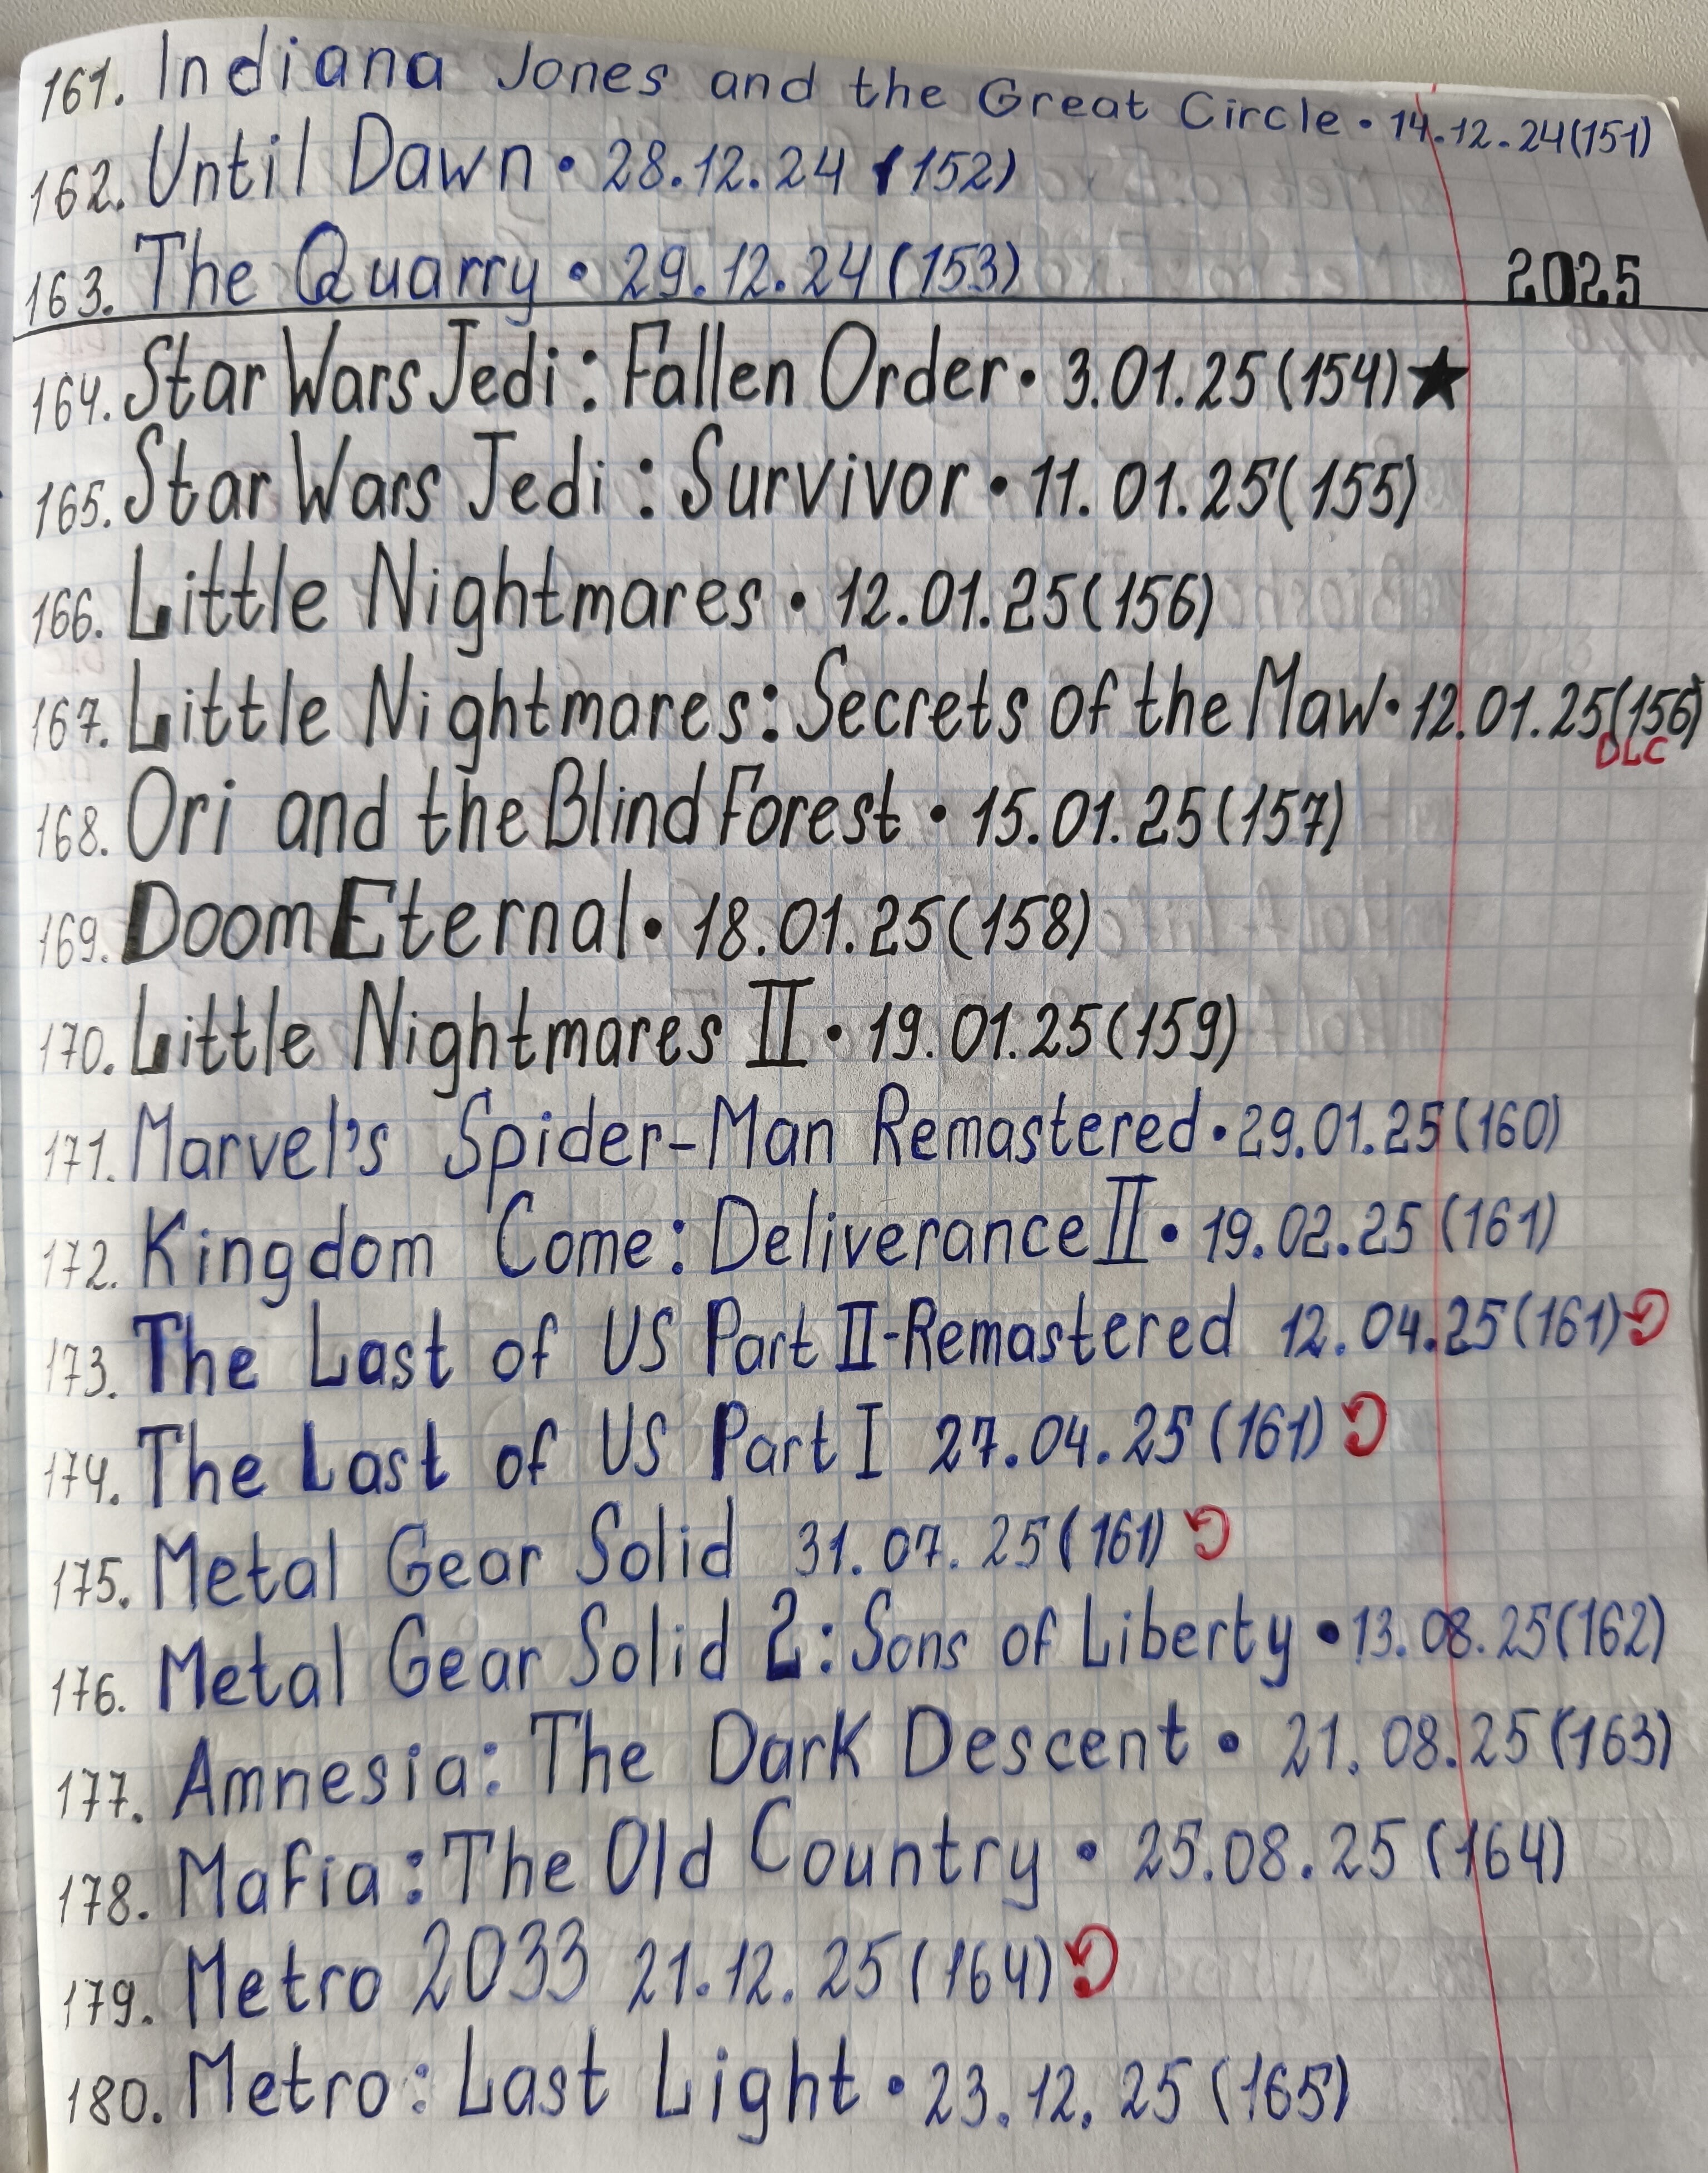 161. Indiana Jones and the Great Circle • 14.12.24(151)
162. Until Dawn • 28.12.24 (152)
163. The Quarry • 29.12.24(153)
2025
164. Star Wars Jedi: Fallen Order • 3.01.25(154)★
165. Star Wars Jedi: Survivor • 11.01.25(155)
166. Little Nightmares • 12.01.25(156)
167. Little Nightmares: Secrets of the Maw • 12.01.25(156)
DLC
168. Ori and the Blind Forest • 15.01.25(157)
169. Doom Eternal • 18.01.25(158)
170. Little Nightmares II • 19.01.25(159)
171. Marvel's Spider-Man Remastered • 29.01.25(160)
172. Kingdom Come: Deliverance II • 19.02.25 (161)
173. The Last of US Part II-Remastered 12.04.25(161)
174. The Last of US Part I 27.04.25(161)
175. Metal Gear Solid 31.07.25(161)
176. Metal Gear Solid 2: Sons of Liberty • 13.08.25(162)
177. Amnesia: The Dark Descent • 21.08.25(163)
178. Mafia: The Old Country • 25.08.25 (164)
179. Metro 2033 21.12.25(164)
180. Metro: Last Light • 23.12.25 (165)